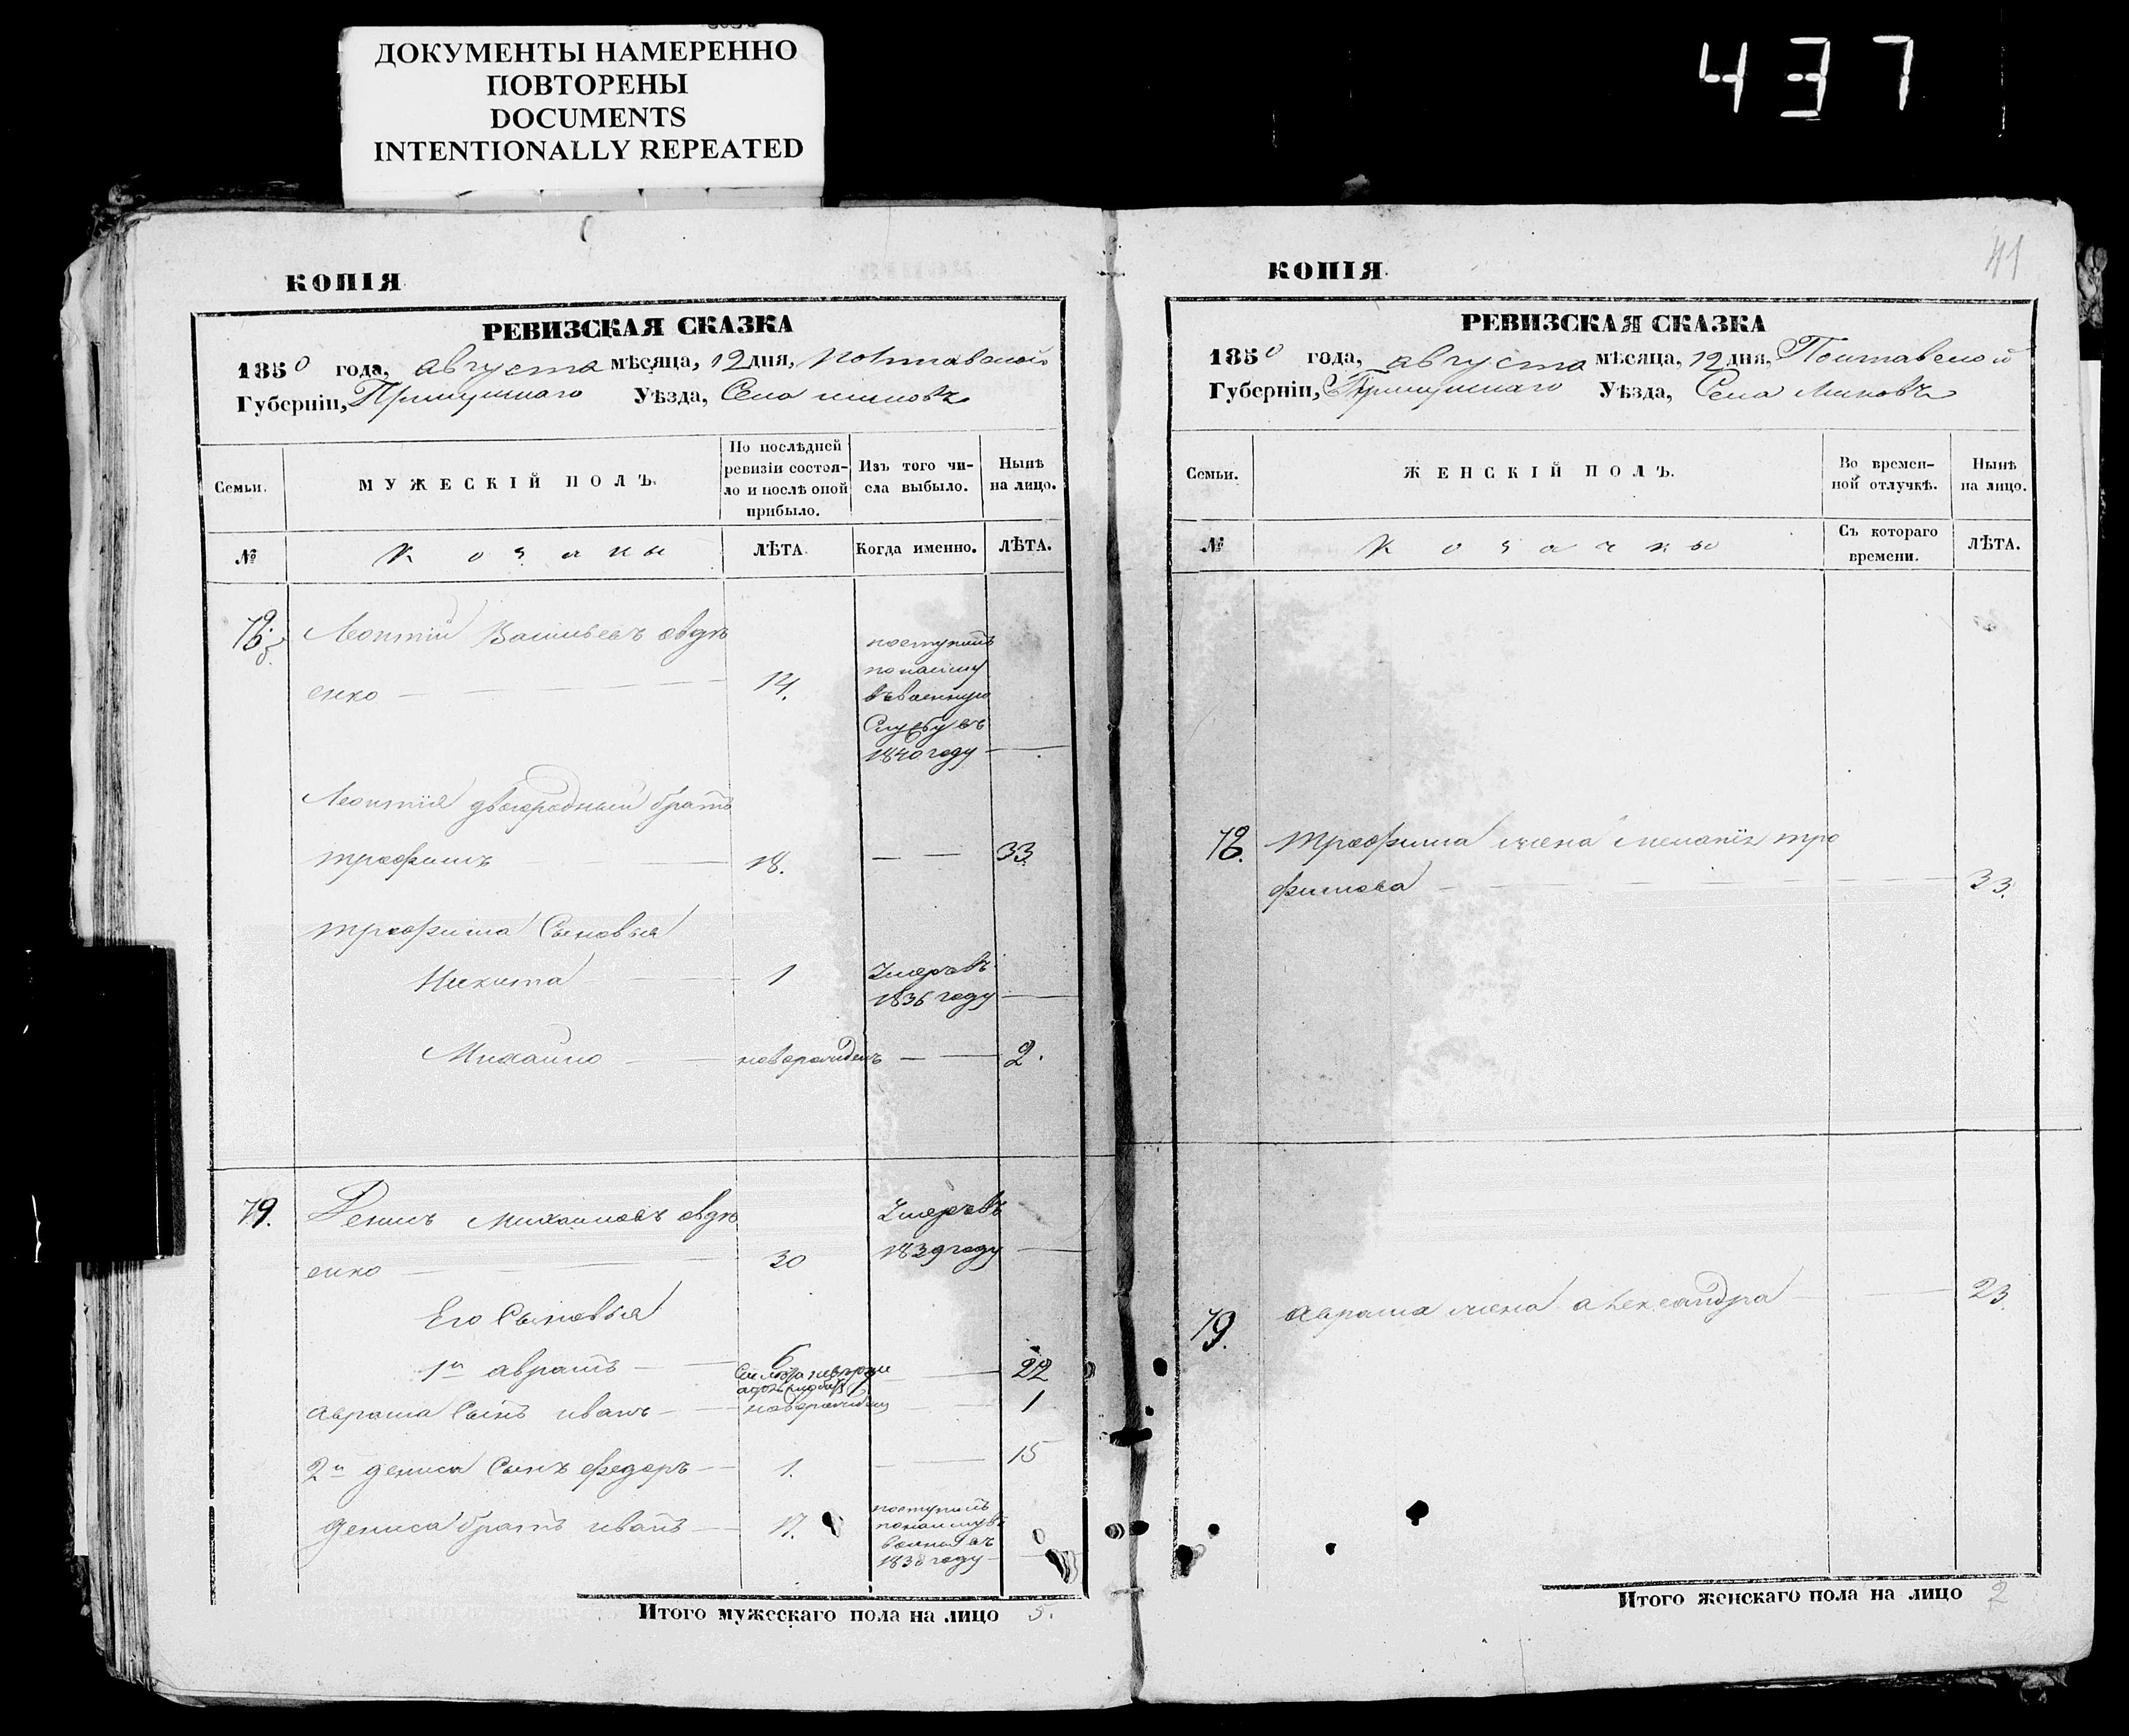 ДОКУМЕНТЫ НАМЕРЕННО
ПОВТОРЕНЫ
DOCUMENTS
INTENTIONALLY REPEATED
437
КОПІЯ
РЕВИЗСКАЯ СКАЗКА
1850 года, августа мѣсяца, 12 дня, Полтавской
Губерніи, Прилуцкаго Уѣзда, Села
Семьи.
МУЖЕСКІЙ ПОЛЪ.
По послѣдней
ревизіи состоя-
ло и послѣ оной
прибыло.
Изъ того чи-
сла выбыло.
Нынѣ
на лицо.
№
Козаки
ЛѢТА.
Когда именно.
ЛѢТА.
78.
Леонтій Васильевъ авдѣ
енко
14.
поступилъ
по найму
въ военную
Службу въ
1840 году
Леонтія двоюродный братъ
трофимъ 18. 33
трофима Сыновья
Никита 1
Умеръ въ
1836 году
Михайло новорожденъ 2.
79.
Денисъ Михайловъ авдѣ
енко 30
Умеръ въ
1839 году
Его Сыновья
1й аврамъ 6 22
аврама Сынъ иванъ новорожденъ 1
2й дениса Сынъ федоръ 1. 15
дениса братъ иванъ 17.
поступилъ
1838 году
0
Итого мужескаго пола на лицо 5.
41
КОПІЯ.
РЕВИЗСКАЯ СКАЗКА
1850 года, августа мѣсяца, 12 дня, Полтавской
Губерніи, Прилуцкаго Уѣзда, Села
Семьи.
ЖЕНСКІЙ ПОЛЪ.
Во времен-
ной отлучкѣ.
Нынѣ
на лицо.
№
Козачки
Съ котораго
времени.
ЛѢТА.
78. трофима жена меланія тро
фимова 33.
79. аврама жена александра 23.
Итого женскаго пола на лицо 2